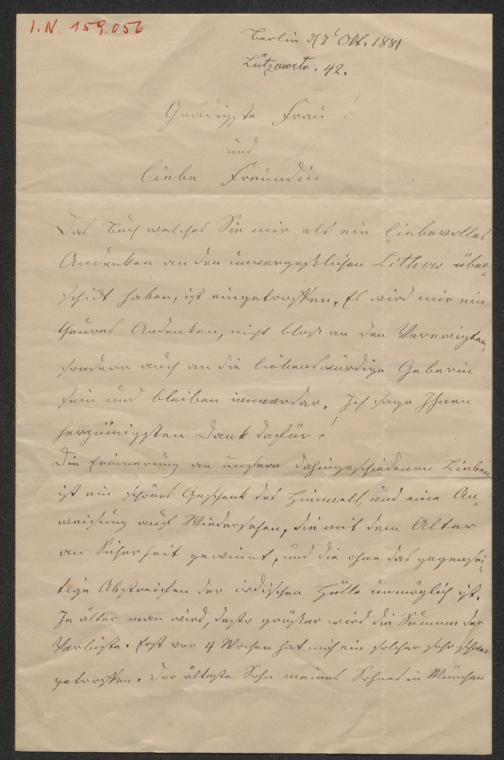 I.N. 159.056
Berlin d 7t Okt. 1881
Lützowstr. 42.
Gnädigste Frau!
und
liebe Freundin
Das Buch welches Sie mir als ein liebevolles
Andenken an den unvergeßlichen Littrow über-
schickt haben, ist eingetroffen. Es wird mir ein
theures Andenken, nicht bloß an den Verewigten,
sondern auch an die liebenswürdige Geberin
sein und bleiben immerdar. Ich sage Ihnen
herzinnigsten Dank dafür!
Die Erinnerung an unsere dahingeschiedenen Lieben
ist ein schönes Geschenk des Himmels, und eine An-
weisung auf Wiedersehen, die mit dem Alter
an Sicherheit gewinnt, und die ohne das gegensei-
tige Abstreichen der irdischen Hülle unmöglich ist.
Je älter man wird, desto größer wird die Summe der
Verluste. Erst vor 4 Wochen hat mich ein solcher sehr schwer
getroffen. Der älteste Sohn meines Sohnes in München